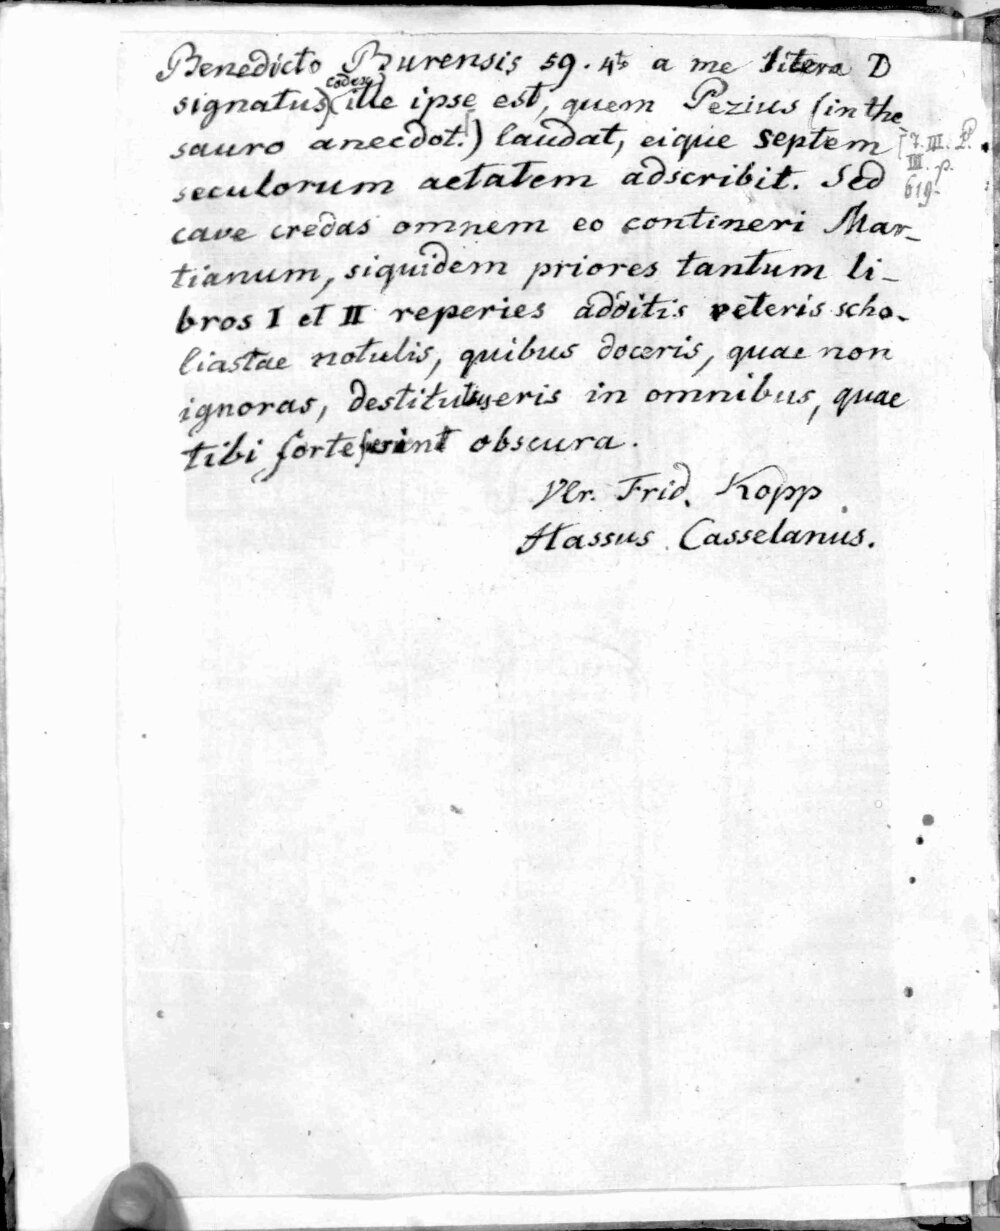 Benedicto Burensis 59. 4to a me litera D
signatus (codex) ille ipse est, quem Pezius (in the
sauro anecdot.) laudat, eique septem
[T. III. P.
III. p.
619.
seculorum aetatem adscribit. Sed
cave credas omnem eo contineri Mar-
tianum, siquidem priores tantum li-
bros I et II reperies additis veteris scho-
liastae notulis, quibus doceris, quae non
ignoras, destitutus eris in omnibus, quae
tibi forte sint obscura.
Vlr. Frid. Kopp
Hassus Casselanus.